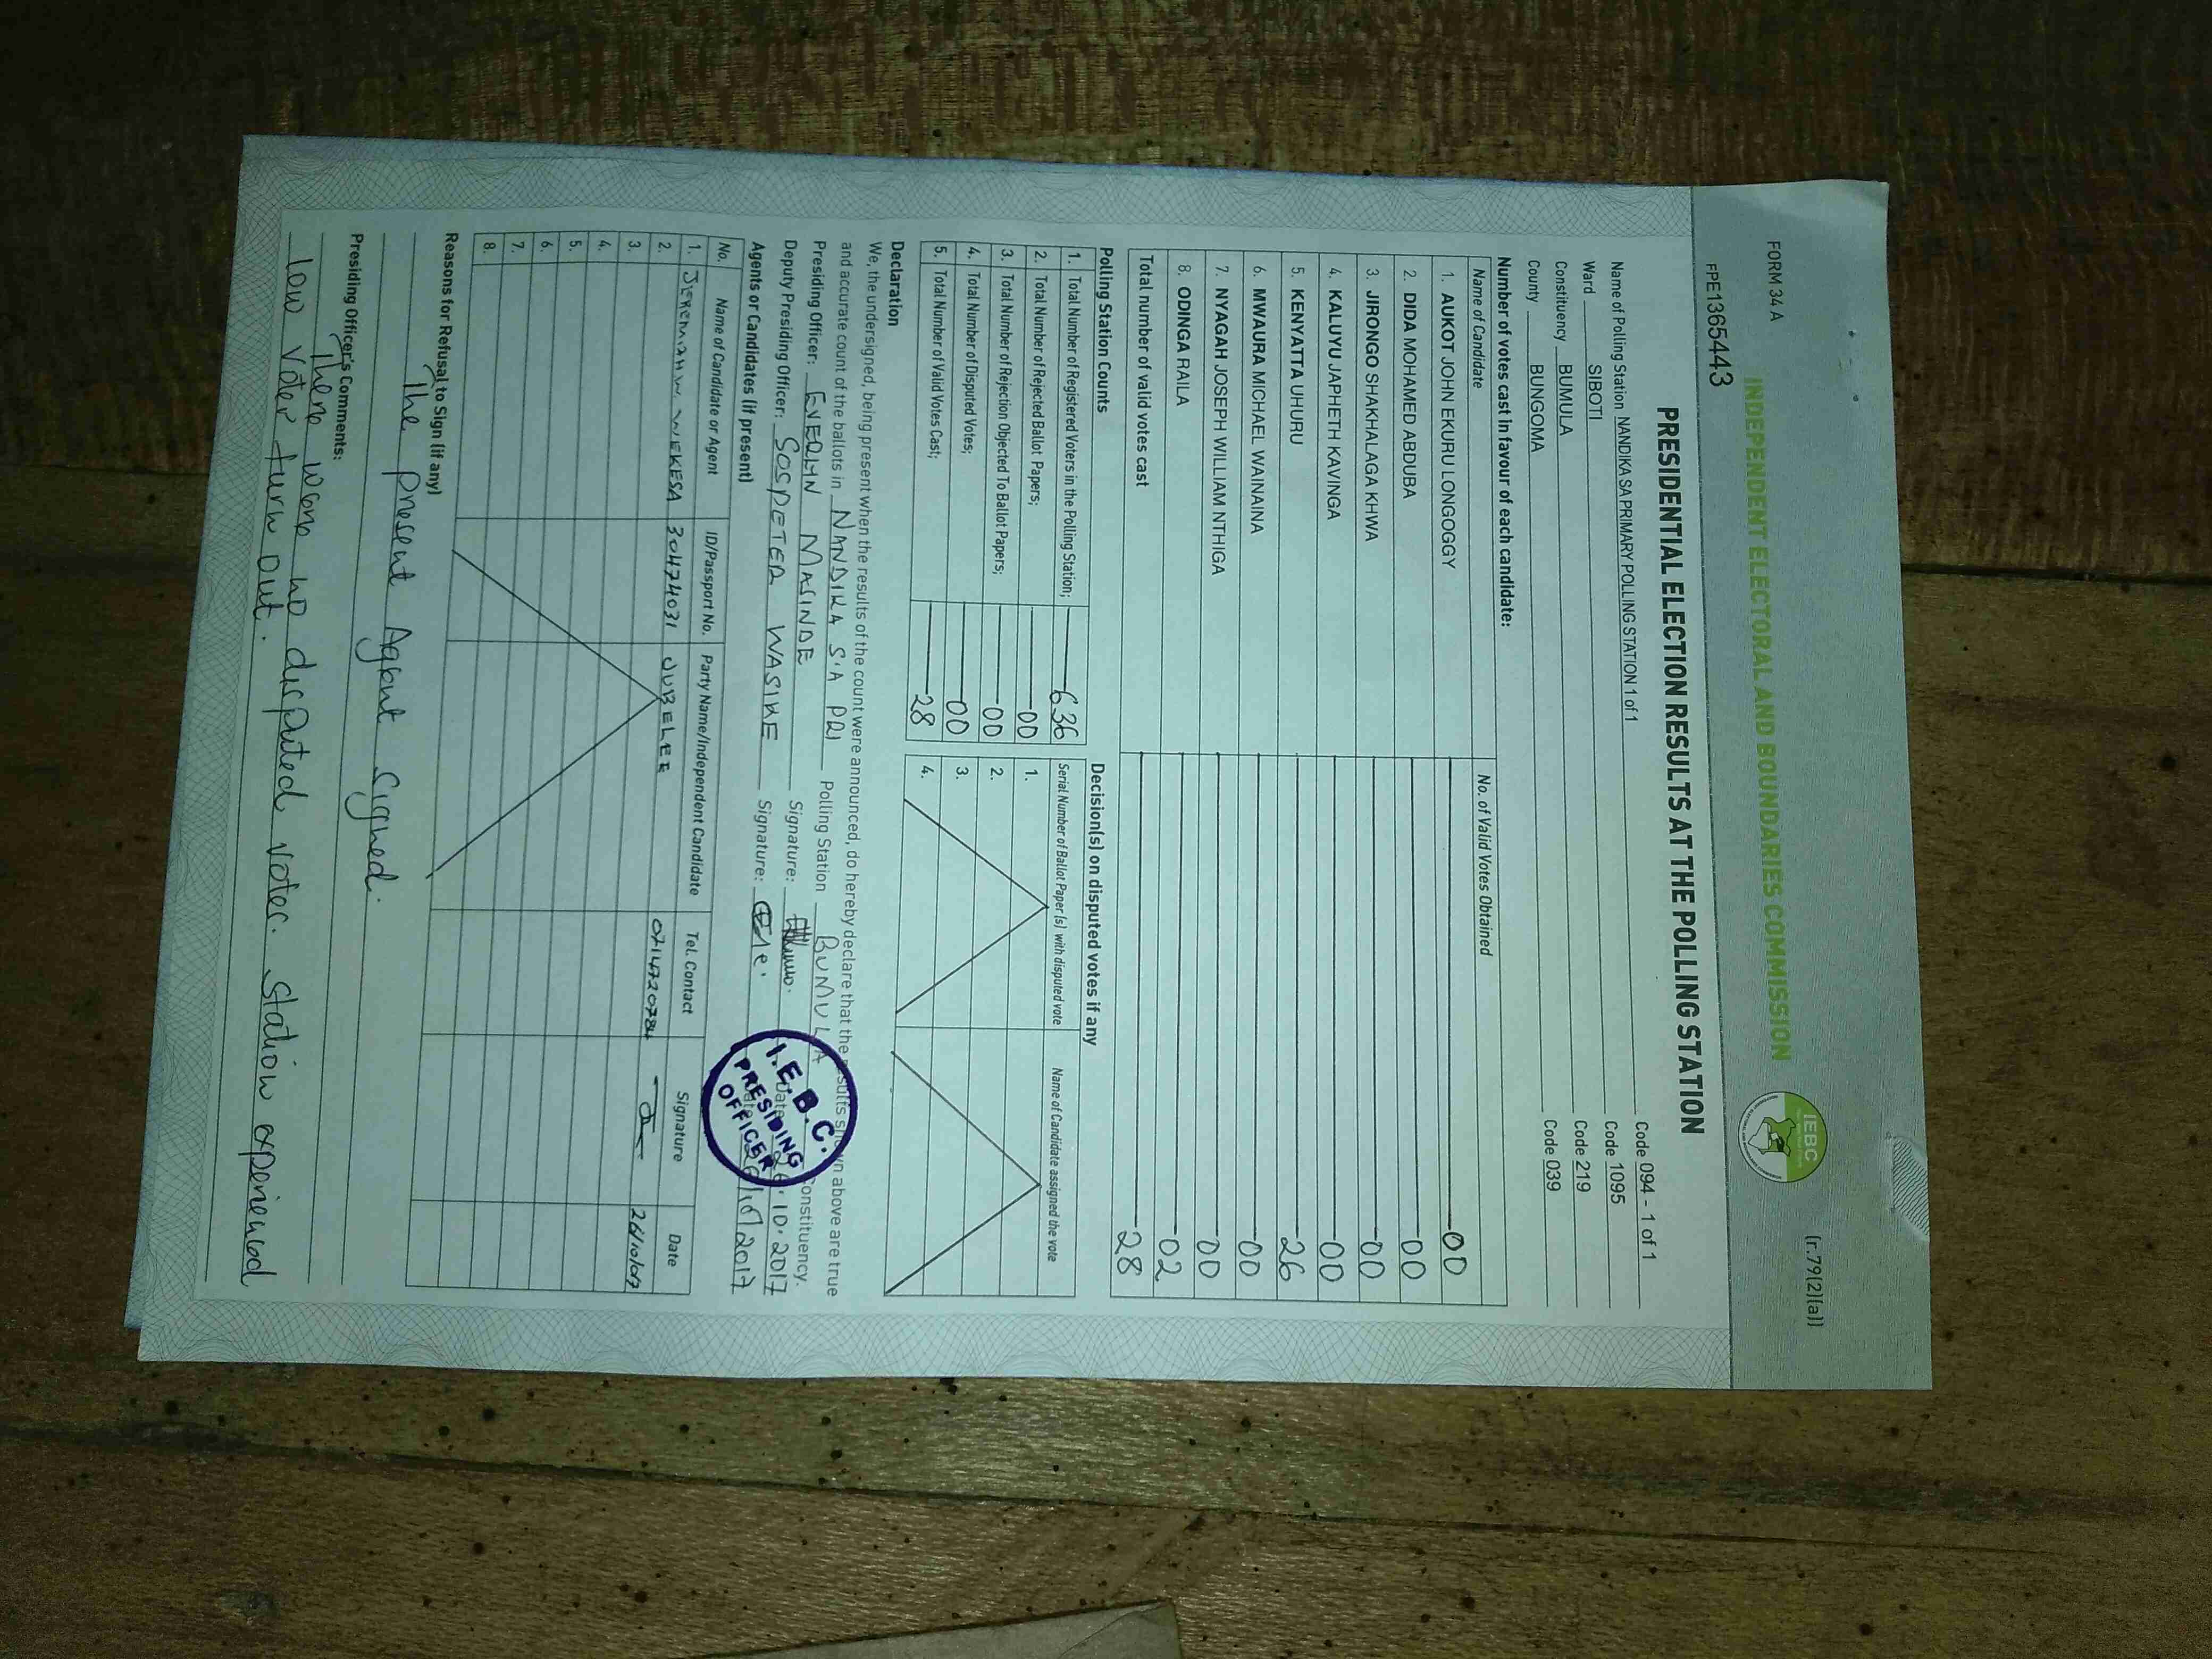 FORM 34 A
(r.79(2)(a))
INDEPENDENT ELECTORAL AND BOUNDARIES COMMISSION
IEBC
FPE1365443
PRESIDENTIAL ELECTION RESULTS AT THE POLLING STATION
Name of Polling Station NANDIKA SA PRIMARY POLLING STATION 1 of 1 Code 094 - 1 of 1
Ward SIBOTI Code 1095
Constituency BUMULA Code 219
County BUNGOMA Code 039
Number of votes cast in favour of each candidate:
Name of Candidate No. of Valid Votes Obtained
1. AUKOT JOHN EKURU LONGOGGY 00
2. DIDA MOHAMED ABDUBA 00
3. JIRONGO SHAKHALAGA KHWA 00
4. KALUYU JAPHETH KAVINGA 00
5. KENYATTA UHURU 26
6. MWAURA MICHAEL WAINAINA 00
7. NYAGAH JOSEPH WILLIAM NTHIGA 00
8. ODINGA RAILA 02
Total number of valid votes cast 28
Polling Station Counts
1. Total Number of Registered Voters in the Polling Station; 636
2. Total Number of Rejected Ballot Papers; 00
3. Total Number of Rejection Objected To Ballot Papers; 00
4. Total Number of Disputed Votes; 00
5. Total Number of Valid Votes Cast; 28
Decision(s) on disputed votes if any
Serial Number of Ballot Paper (s) with disputed vote Name of Candidate assigned the vote
1.
2.
3.
4.
Declaration
We, the undersigned, being present when the results of the count were announced, do hereby declare that the results shown above are true
and accurate count of the ballots in NANDIKA S.A PRI Polling Station BUMULA Constituency.
Presiding Officer: EVERLYN MASINDE Signature: Date 26.10.2017
Deputy Presiding Officer: SOSPETER WASIKE Signature: Date 26/10/2017
I.E.B.C.
PRESIDING
OFFICER
Agents or Candidates (if present)
No. Name of Candidate or Agent ID/Passport No. Party Name/Independent Candidate Tel. Contact Signature Date
1. JEREMIAH W. WEKESA 30474031 JUBELEE 0714720784 26/10/017
2.
3.
4.
5.
6.
7.
8.
Reasons for Refusal to Sign (if any)
The present Agent signed.
Presiding Officer's Comments:
There were no disputed votes. Station experienced
low voter turn out.